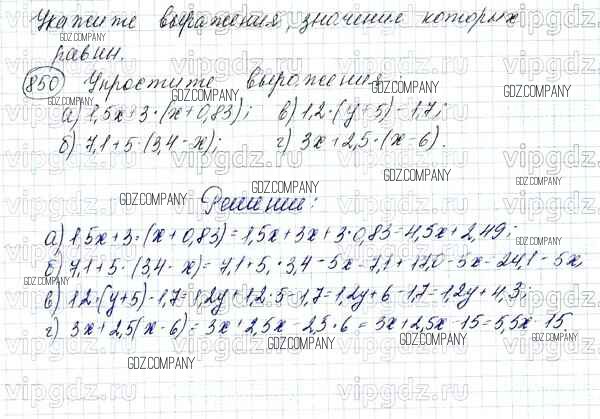 Укажите выражения, значение которых
равны.
850 Упростите выражения
а) 1,5x+3·(x+0,83); в) 1,2·(y+5)-1,7;
б) 7,1+5·(3,4-x); г) 3x+2,5·(x-6).
Решение:
а) 1,5x+3·(x+0,83)=1,5x+3x+3·0,83=4,5x+2,49;
б) 7,1+5·(3,4-x)=7,1+5·3,4-5x=7,1+17,0-5x=24,1-5x,
в) 1,2·(y+5)-1,7=1,2y+1,2·5-1,7=1,2y+6-1,7=1,2y+4,3;
г) 3x+2,5(x-6)=3x+2,5x-2,5·6=3x+2,5x-15=5,5x-15.
GDZ.COMPANY
vipgdz.ru